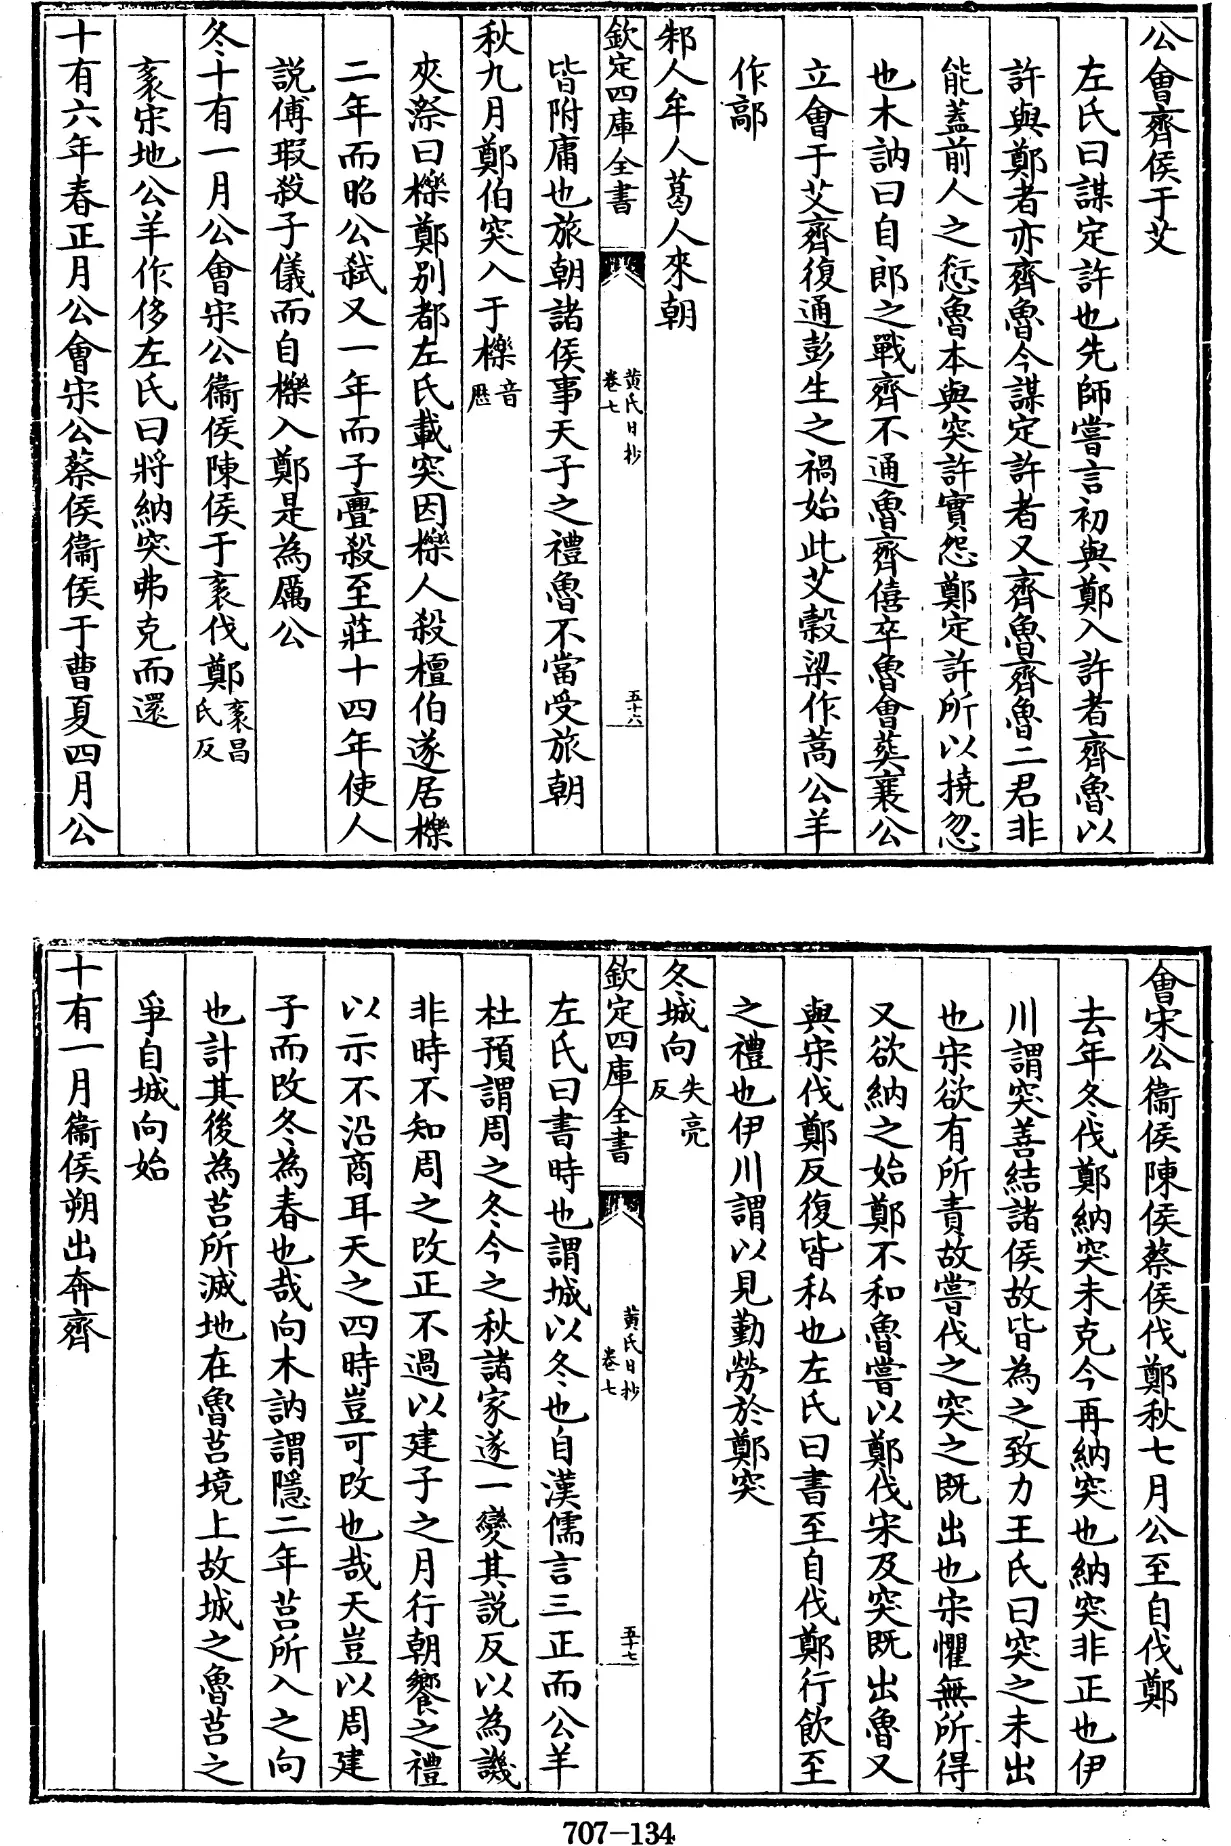 公會齊侯于艾
左氏曰謀定許也先師嘗言初與鄭入許者齊魯以
許與鄭者亦齊魯今謀定許者又齊魯齊魯二君非
能蓋前人之愆魯本與突許實怨鄭定許所以撓忽
也木訥曰自郎之戰齊不通魯齊僖卒魯會葬襄公
立會于艾齊復通彭生之禍始此艾穀梁作蒿公羊
作鄗
邾人牟人葛人來朝
欽定四庫全書
黄氏日抄
卷七
五十六
皆附庸也旅朝諸侯事天子之禮魯不當受旅朝
秋九月鄭伯突入于櫟音歷
夾漈曰櫟鄭別都左氏載突因櫟人殺檀伯遂居櫟
二年而昭公弒又一年而子亹殺至莊十四年使人
說傅瑕殺子儀而自櫟入鄭是為厲公
冬十有一月公會宋公衞侯陳侯于袲伐鄭袲昌氏反
袲宋地公羊作侈左氏曰將納突弗克而還
十有六年春正月公會宋公蔡侯衞侯于曹夏四月公
會宋公衞侯陳侯蔡侯伐鄭秋七月公至自伐鄭
去年冬伐鄭納突未克今再納突也納突非正也伊
川謂突善結諸侯故皆為之致力王氏曰突之未出
也宋欲有所責故嘗伐之突之既出也宋懼無所得
又欲納之始鄭不和魯嘗以鄭伐宋及突既出魯又
與宋伐鄭反復皆私也左氏曰書至自伐鄭行飲至
之禮也伊川謂以見勤勞於鄭突
冬城向失亮反
欽定四庫全書
黄氏日抄
卷七
五十七
左氏曰書時也謂城以冬也自漢儒言三正而公羊
杜預謂周之冬今之秋諸家遂一變其說反以為譏
非時不知周之改正不過以建子之月行朝饗之禮
以示不沿商耳天之四時豈可改也哉天豈以周建
子而改冬為春也哉向木訥謂隱二年莒所入之向
也計其後為莒所滅地在魯莒境上故城之魯莒之
爭自城向始
十有一月衞侯朔出奔齊
707-134